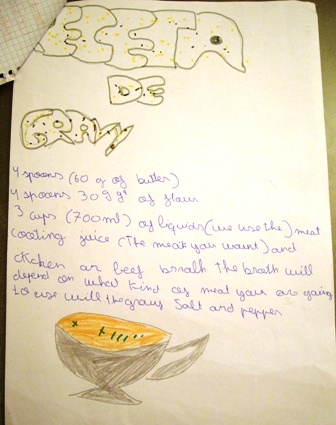 RECETA
DE
GRAVY
4 spoons (60 g of butter)
4 spoons 30g gr of flour
3 cups (700ml) of liquids (we use the) meat
cooting juice (The meat you want) and
chicken or beef broath the broth will
depend on what kind of meat your are going
to use with the gravy Salt and pepper